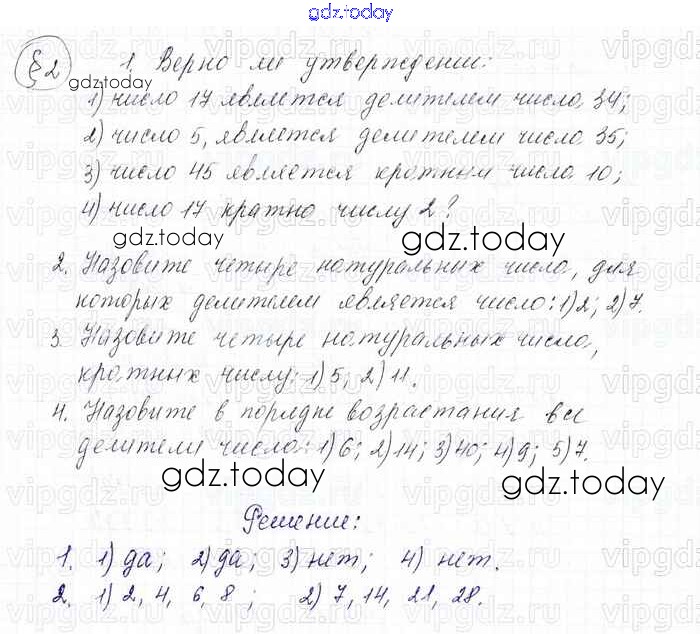 gdz.today
§2 1. Верно ли утверждение:
gdz.today
1) число 17 является делителем числа 34;
2) число 5, является делителем числа 35;
3) число 45 является кратным числа 10;
4) число 17 кратно числу 2?
gdz.today gdz.today
2. Назовите четыре натуральных числа, для
которых делителем является число: 1) 2; 2) 7.
3. Назовите четыре натуральных числа,
кратных числу: 1) 5; 2) 11.
4. Назовите в порядке возрастания все
делители числа: 1) 6; 2) 14; 3) 40; 4) 9; 5) 7.
gdz.today gdz.today
Решение:
1. 1) да; 2) да; 3) нет; 4) нет.
2. 1) 2, 4, 6, 8; 2) 7, 14, 21, 28.